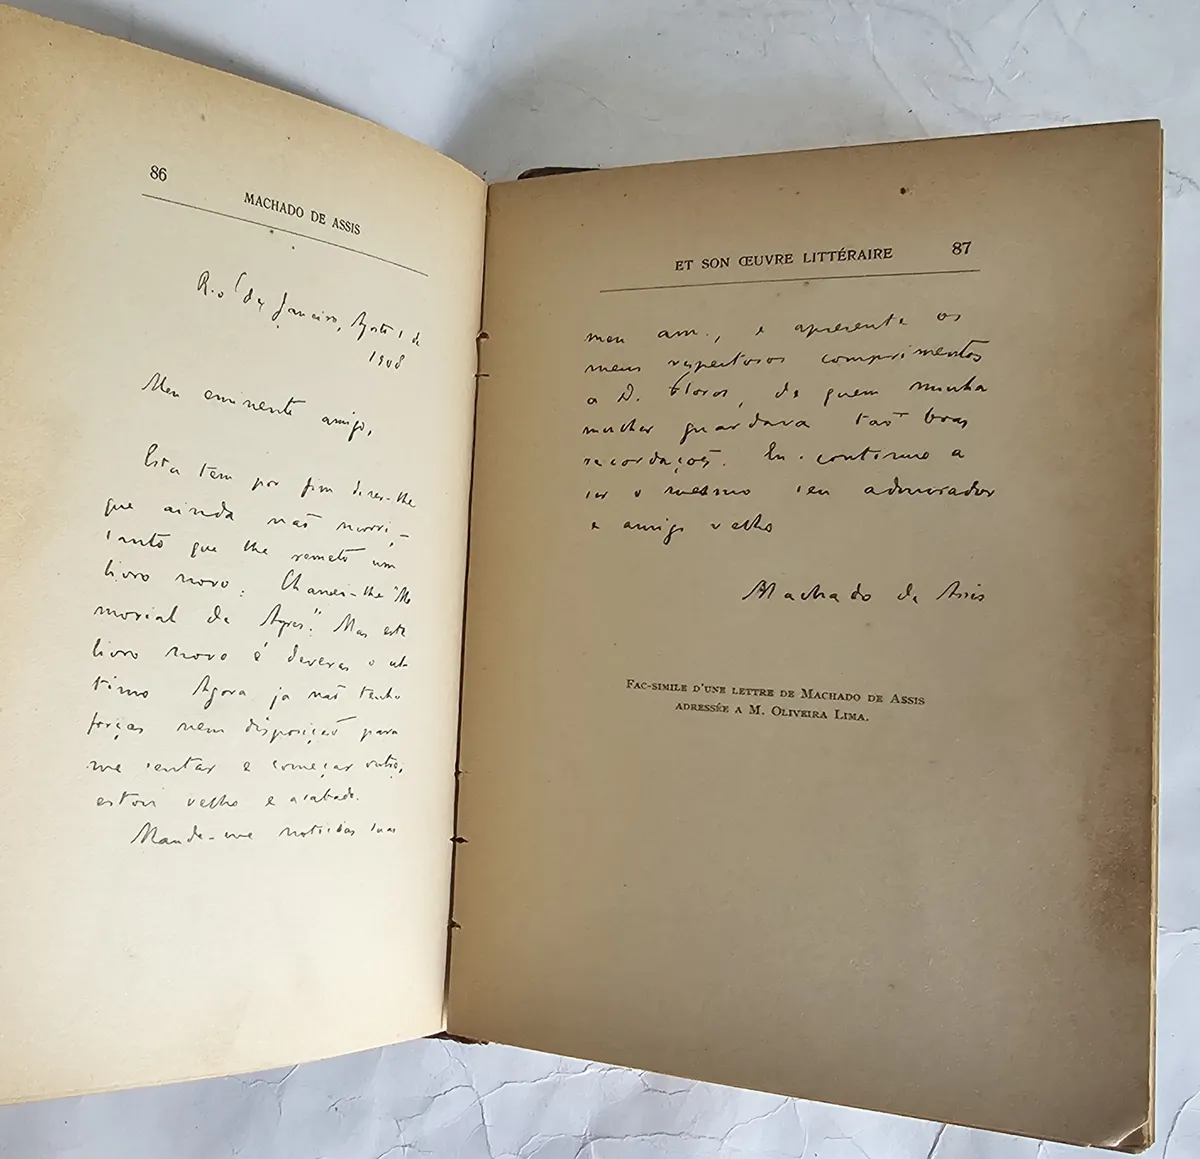 86
MACHADO DE ASSIS
Rio de Janeiro, Agosto 1 de
1908
Meu eminente amigo,
Esta tem por fim dizer-lhe
que ainda não morri,
tanto que lhe remeto um
livro novo. Chamei-lhe "Me
morial de Ayres." Mas este
livro novo é deveras o ul-
timo Agora já não tenho
forças nem disposição para
me sentar e começar outro,
estou velho e acabado.
Mande-me noticias suas
ET SON ŒUVRE LITTÉRAIRE 87
meu am., e apresente os
meus respeitosos comprimentos
a D. Flora, de quem minha
mulher guardava tão boas
recordações. Eu continuo a
ser o mesmo seu admirador
e amigo velho
Machado de Assis
FAC-SIMILE D'UNE LETTRE DE MACHADO DE ASSIS
ADRESSÉE A M. OLIVEIRA LIMA.